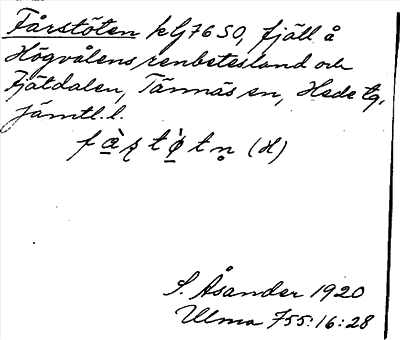 Fårstöten kG7650, fjäll å
Högvålens renbetesland och
Fjätdalen, Tännäs sn, Hede tg,
Jämtl. l.
f à̱ ʂ t ø̱̀ t n̥ (H)
S. Åsander 1920
Ulma 755:16:28